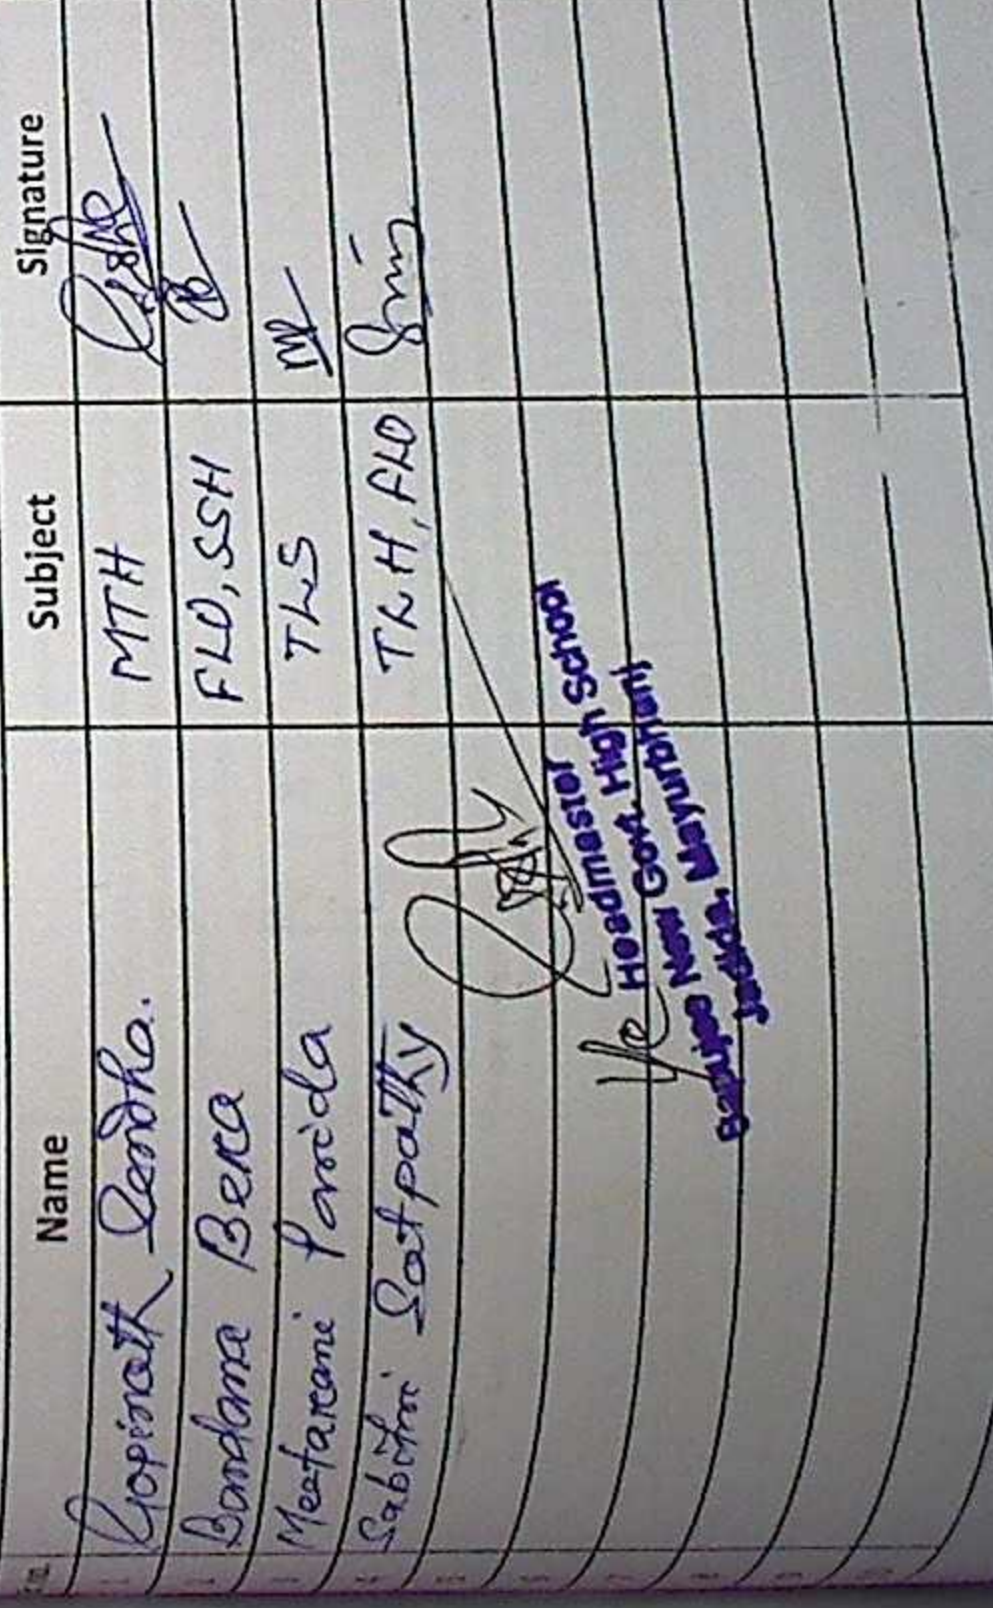 Name Subject Signature
Gopinath Sendha. MTH
Bandana Bera FLO, SSH
Meetarani Parida TLS
Sabitri Satpathy TLH, FLO
Headmaster
New Govt. High School
Jadida, Mayurbhanj